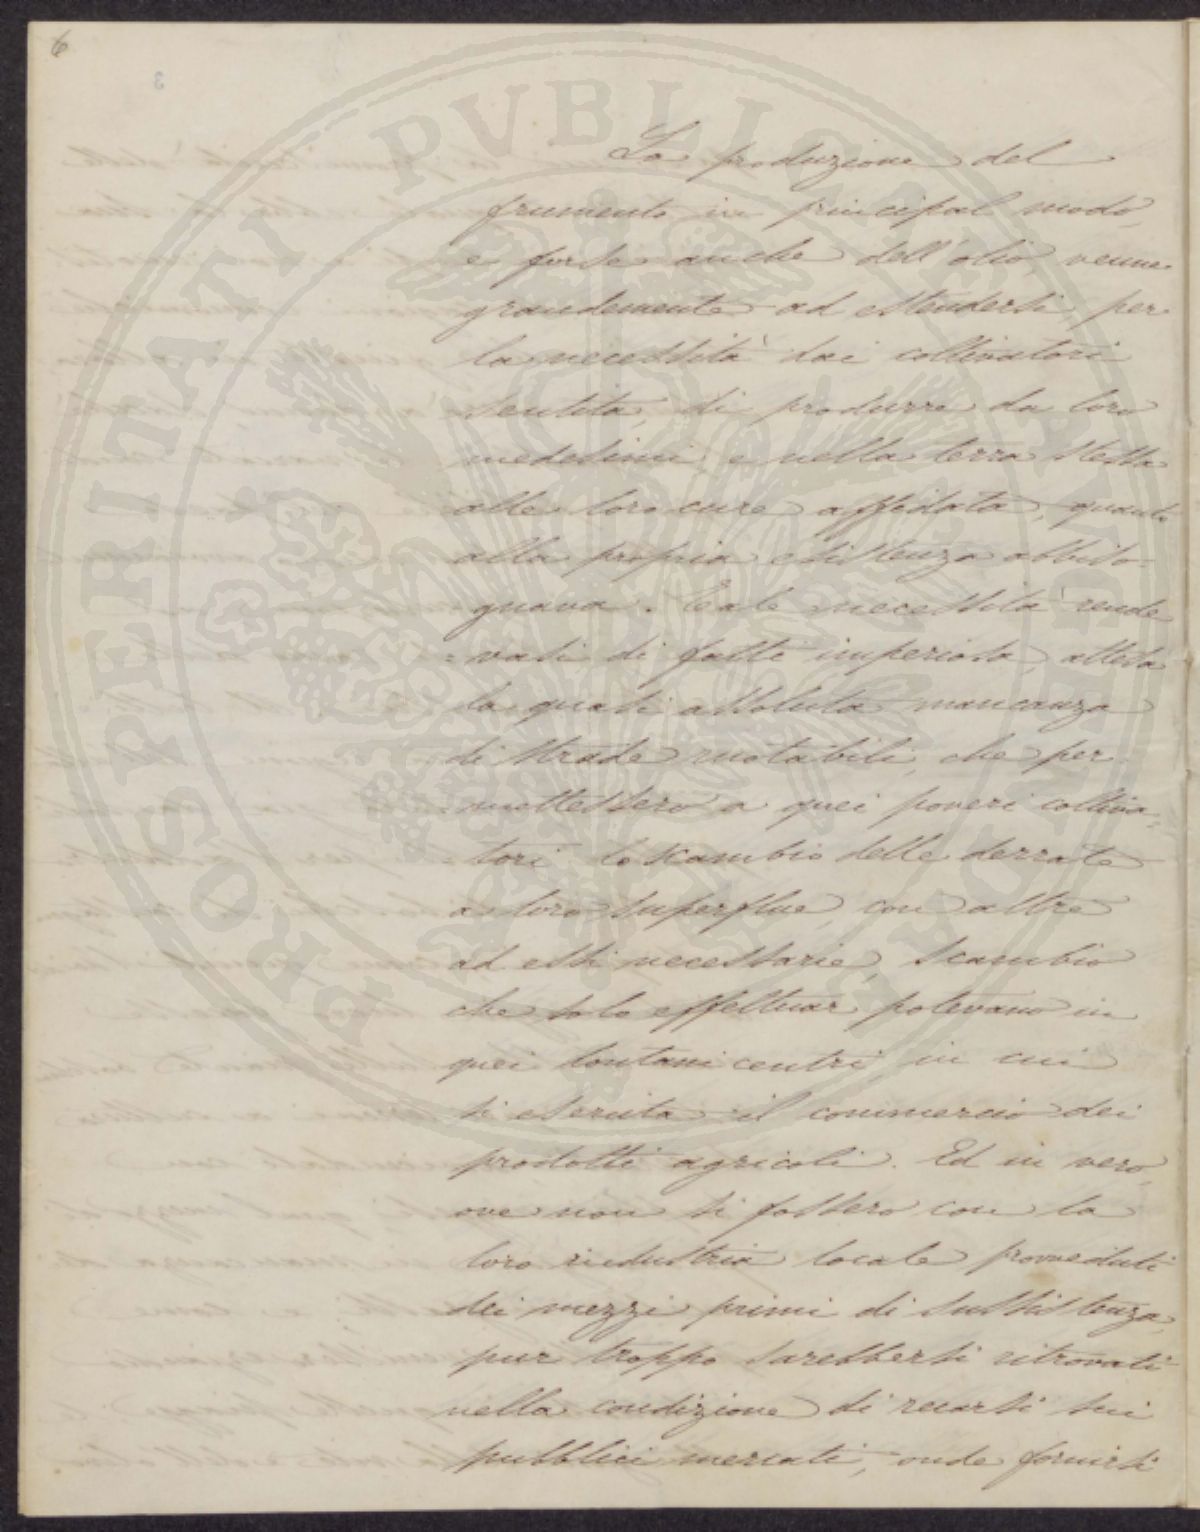 6
3
La produzione del
frumento in principal modo,
e forse anche dell'olio, venne
grandemente ad estendersi per
la necessità dai coltivatori
sentita, di produrre da loro
medesimi, e nella terra stessa
alle loro cure affidata, quanto
alla propria esistenza abbiso-
gnava. Tale necessità rende
vasi di fatti imperiosa, attesa
la quasi assoluta mancanza
di strade ruotabili, che per
mettessero a quei poveri coltiva-
tori lo scambio delle derrate
a loro superflue, con altre
ad essi necessarie, scambio
che solo effettuar potevano in
quei lontani centri, in cui
si esercita il commercio dei
prodotti agricoli. Ed in vero,
ove non si fossero con la
loro industria locale provveduti
dei mezzi primi di sussistenza,
pur troppo sarebbersi ritrovati
nella condizione di recarsi sui
pubblici mercati, onde fornirsi
PROSPERITATI PVBLICAE AVGENDAE